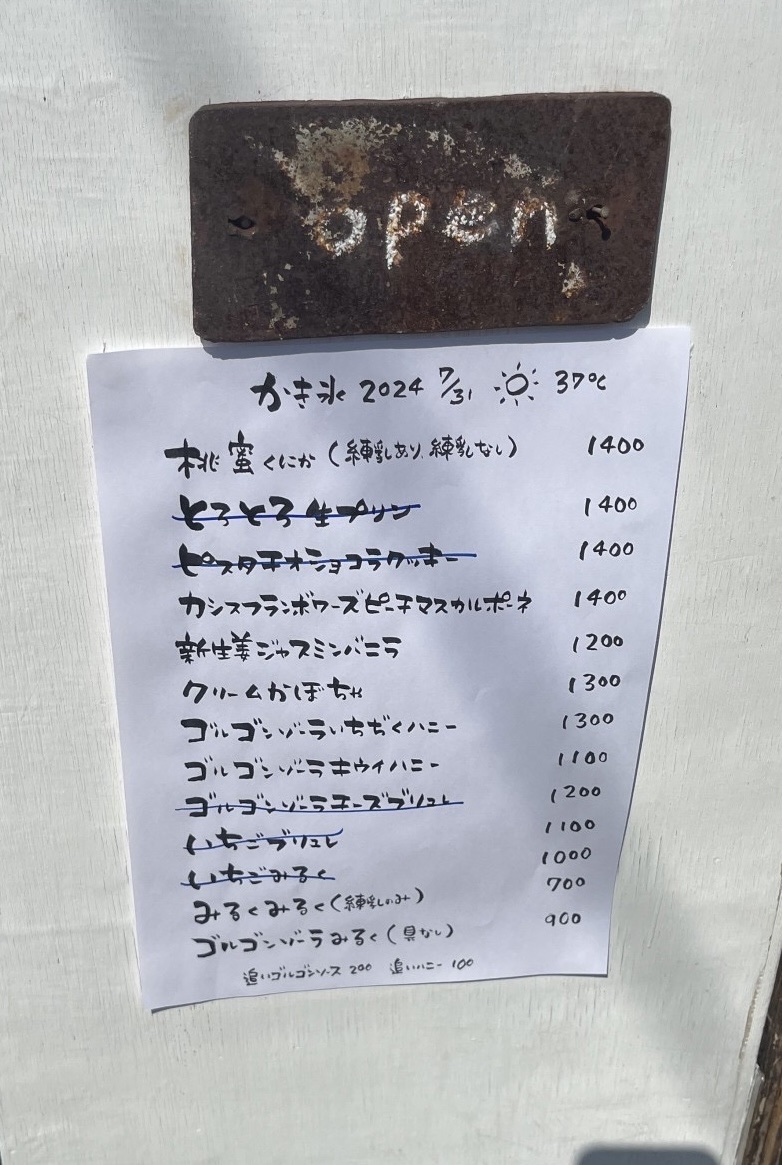 open
かき氷 2024 7/31 ☀ 37℃
桃蜜くにか(練乳あり、練乳なし) 1400
とろとろ生プリン 1400
ピスタチオショコラクッキー 1400
カシスフランボワーズピーチマスカルポーネ 1400
新生姜ジャスミンバニラ 1200
クリームかぼちゃ 1300
ゴルゴンゾーラいちぢくハニー 1300
ゴルゴンゾーラキウイハニー 1100
ゴルゴンゾーラチーズブリュレ 1200
いちごブリュレ 1100
いちごみるく 1000
みるくみるく(練乳のみ) 700
ゴルゴンゾーラみるく(具なし) 900
追いゴルゴンソース 200 追いハニー 100